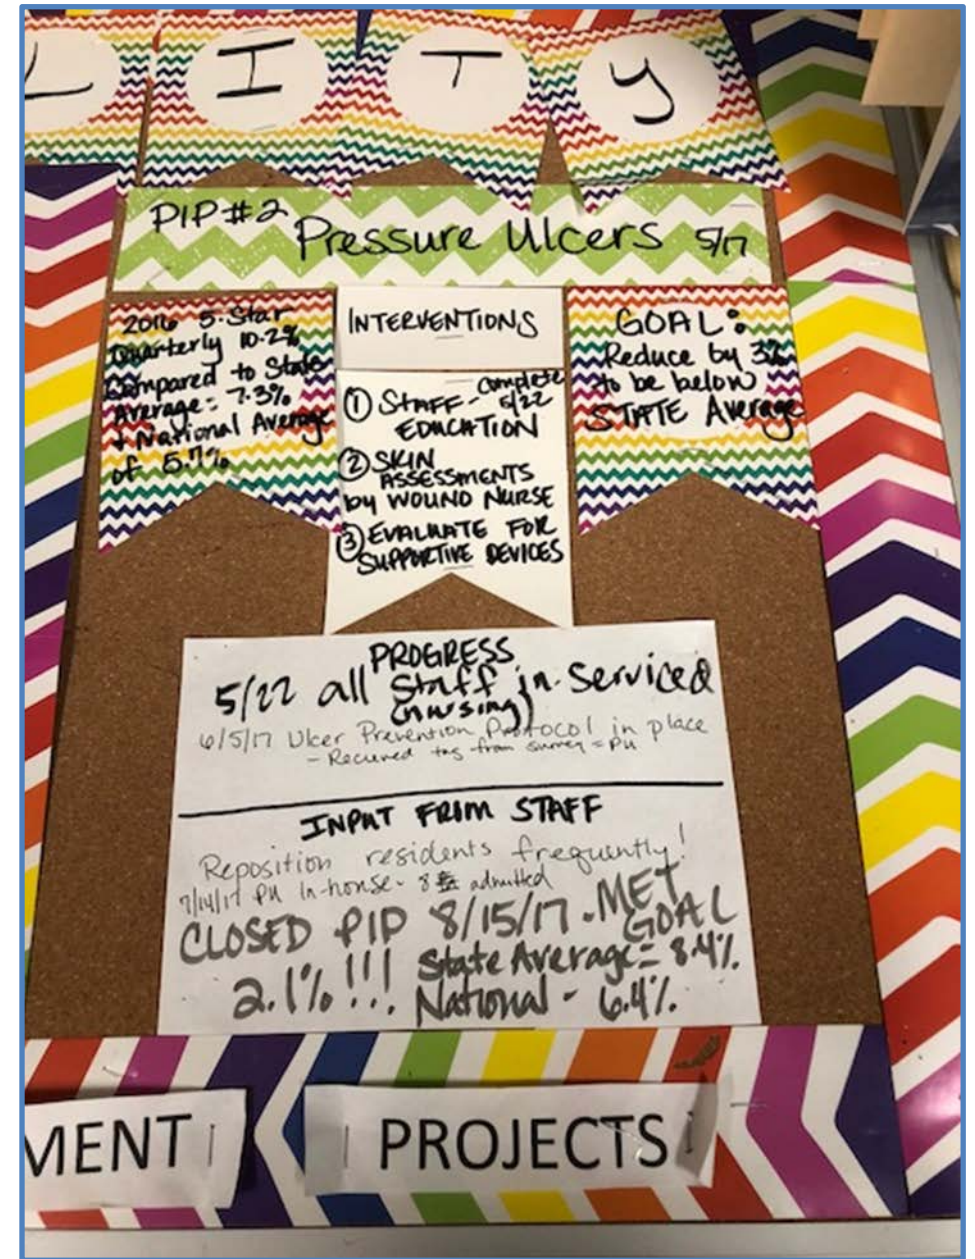 L I T Y
PIP #2
Pressure Ulcers 5/17
2016 5-Star
Quarterly 10.2%
Compared to State
Average = 7.3%
+ National Average
of 5.7%
INTERVENTIONS
① STAFF - Complete 5/22
EDUCATION
② SKIN
ASSESSMENTS
by WOUND NURSE
③ EVALUATE FOR
SUPPORTIVE DEVICES
GOAL:
Reduce by 3%
to be below
STATE Average
PROGRESS
5/22 all Staff in-serviced
(nursing)
6/5/17 Ulcer Prevention Protocol in place
- Recieved tag from survey = PU
INPUT FROM STAFF
Reposition residents frequently!
7/14/17 PU In-house - 8 admitted
CLOSED PIP 8/15/17. MET
GOAL
2.1%!!! State Average = 8.4%.
National - 6.4%.
MENT PROJECTS